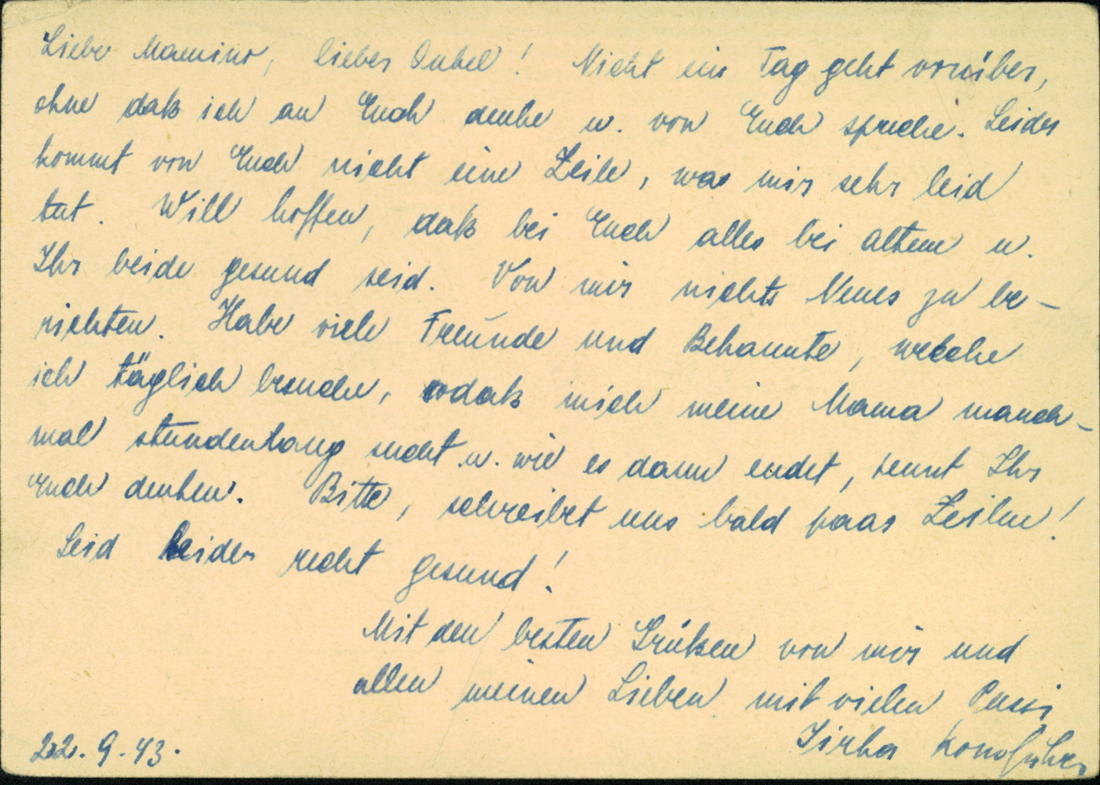 Liebe Mamino, lieber Onkel! Nicht ein Tag geht vorüber,
ohne daß ich an Euch denke u. von Euch spreche. Leider
kommt von Euch nicht eine Zeile, was mir sehr leid
tut. Will hoffen, daß bei Euch alles bei altem u.
Ihr beide gesund seid. Von mir nichts Neues zu be-
richten. Habe viele Freunde und Bekannte, welche
ich täglich besuche, sodaß mich meine Mama manch-
mal stundenlang sucht u. wie es dann endet, könnt Ihr
Euch denken. Bitte, schreibet uns bald paar Zeilen!
Seid beider recht gesund!
Mit den besten Grüßen von mir und
allen meinen Lieben mit vielen Pussi
Jirka
22. 9. 43.